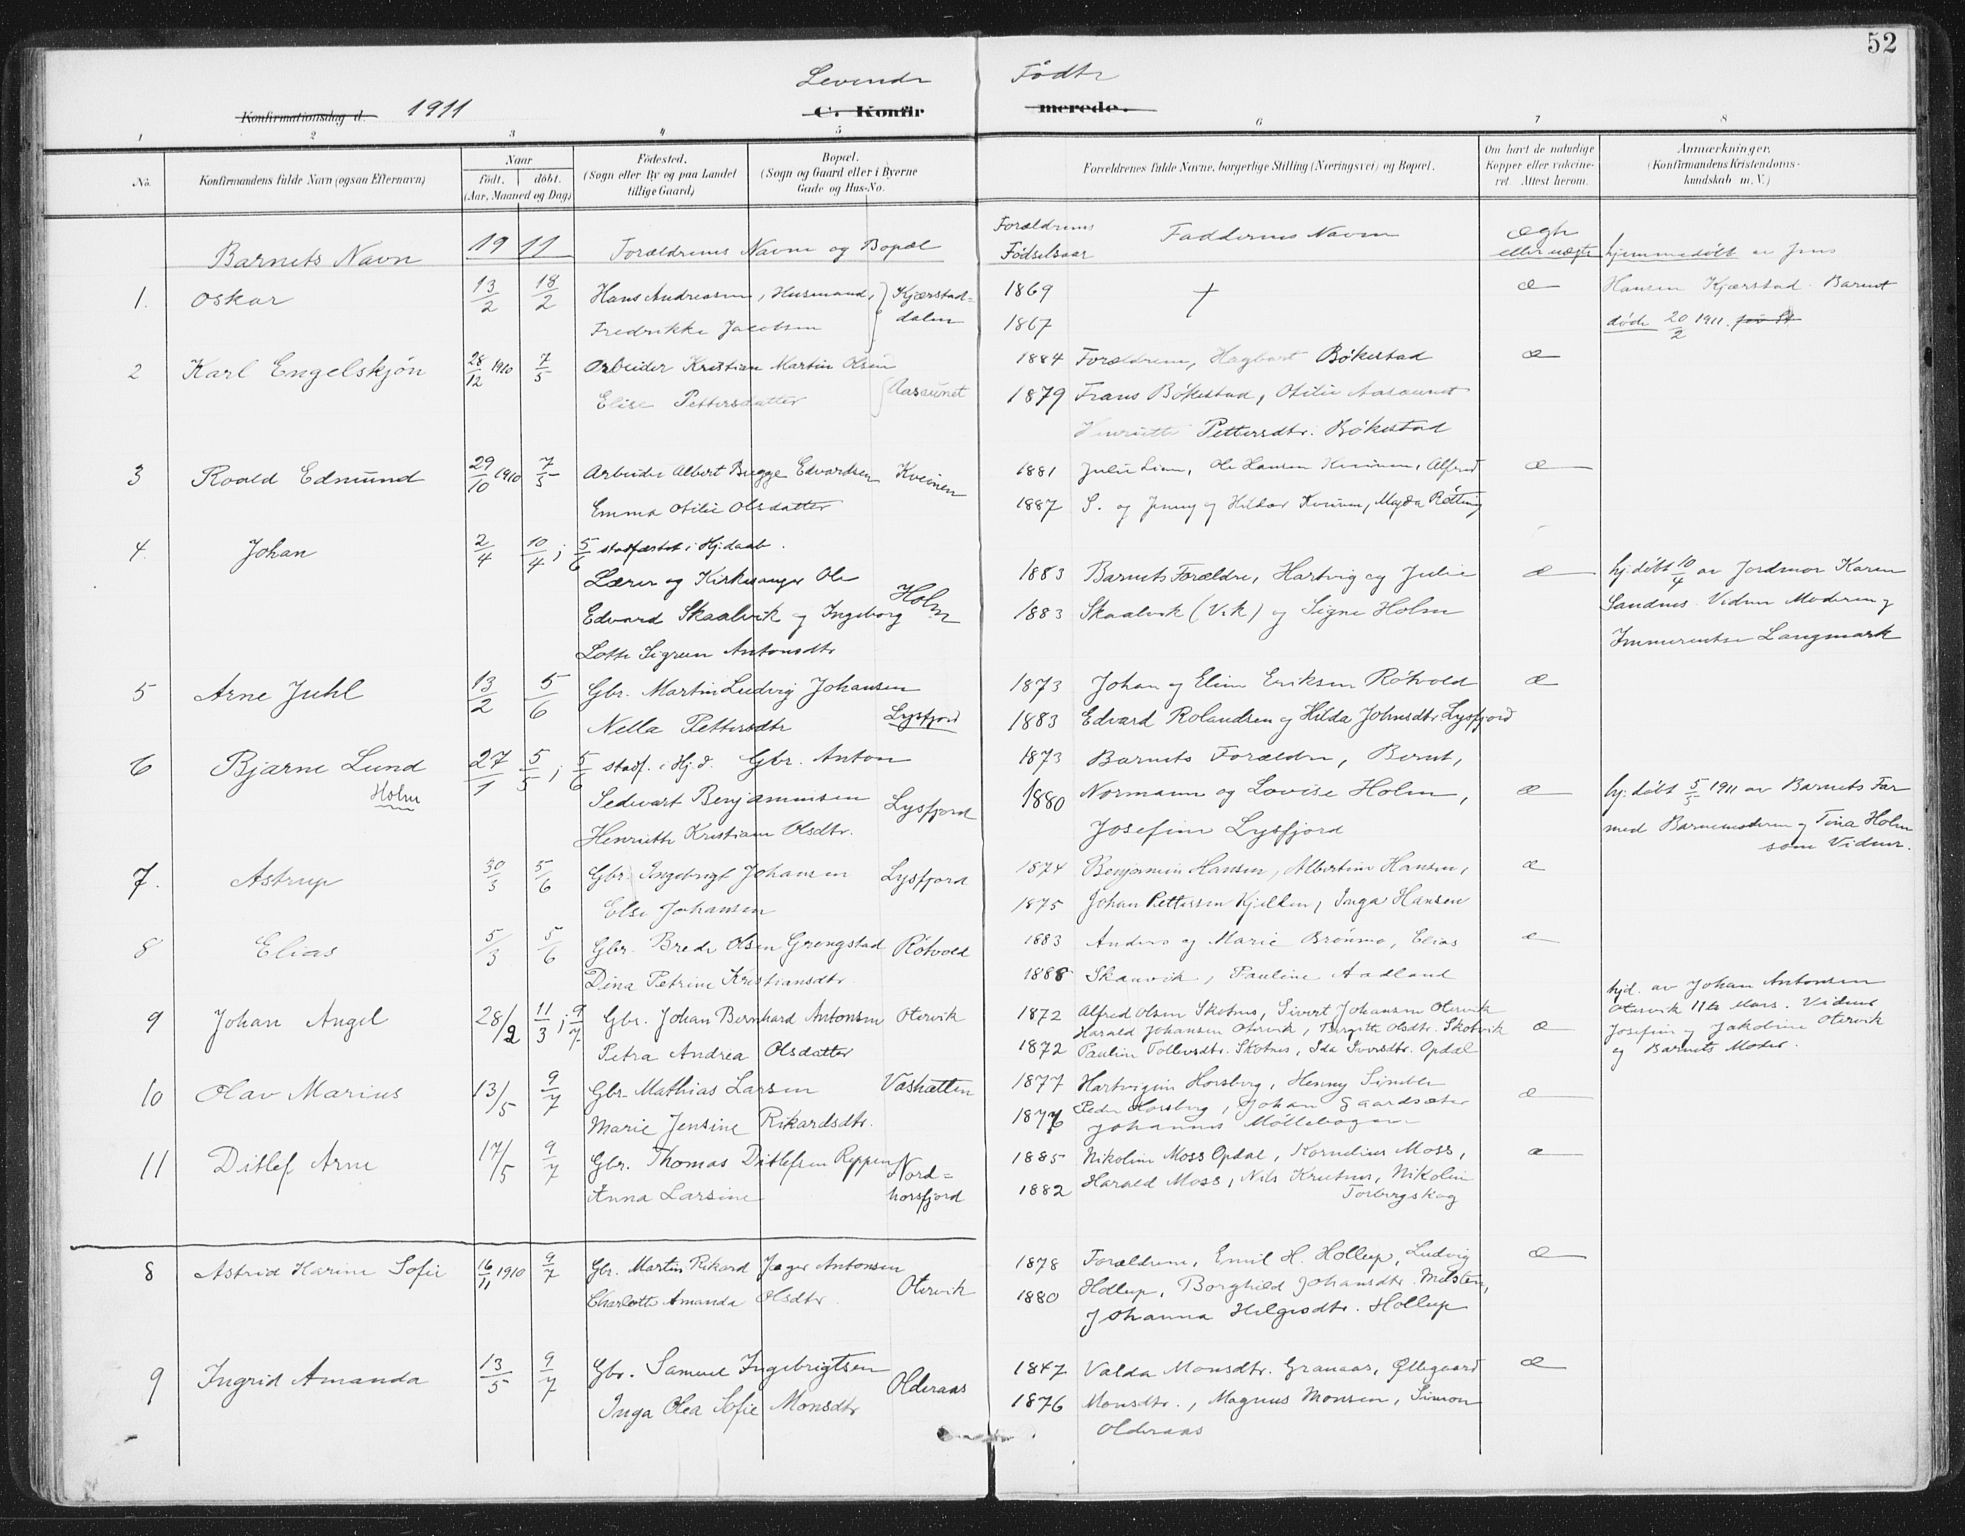 52
Levende Fødte
Konfirmationsdag d. 1911 C. Konfir merede.
1 2 3 4 5 6 7 8
No. Konfirmandens fulde Navn (ogsaa Efternavn)
Naar
født. døbt.
(Aar, Maaned og Dag)
Fødested.
(Sogn eller By og paa Landet
tillige Gaard)
Bopæl.
(Sogn og Gaard eller i Byerne
Gade og Hus-No.
Forældrenes fulde Navne, borgerlige Stilling (Næringsvei) og Bopæl.
Om havt de naturlige
Kopper eller vakcine-
ret. Attest herom.
Anmærkninger.
(Konfirmandens Kristendoms-
kundskab m. V.)
Barnets Navn 1911 Forældrenes Navne og Bopæl
Forældrenes
Fødselsaar
Faddernes Navne
ægte
eller uægte
1. Oskar 13/2 18/2 Hans Andreasen, Husmand, Kjærstad=
Fredrikke Jacobsen dalen
1869 † æ hjemmedøbt av Jens
1867 Hansen Kjærstad. Barnet
døde 20/2 1911.
2 Karl Engelskjøn 28/12 1910 7/5 Arbeider Kristian Martin Olsen
Elise Pettersdatter Aasaunet
1884 Forældrene, Hagbart Bøkestad æ
1879 Frans Bøkestad, Otilie Aasaunet
Henriette Pettersdtr. Bøkestad
3 Roald Edmund 29/10 1910 7/5 Arbeider Albert Bugge Edvardsen Kveinen
Emma Otilie Olsdatter
1881 Julie Lian, Ole Hansen Kveinen, Alfred æ
1887 S. og Jenny og Hildor Kveinen, Magda Røtting
4. Johan 2/4 10/4; 5/6 stadfæstet i Hj.daab.
Lærer og Kirkesanger Ole
Edvard Skaalvik og Ingeborg Holm
Lotte Sigrun Antonsdtr
1883 Barnets Forældre, Hartvig og Julie æ
1883 Skaalvik (Vik) og Signe Holm
hj. døbt 10/4 av Jordmor Karen
Sandnes. Vidner Moderen og
Immerentse Langmark
5 Arne Juhl 13/2 5/6 Gbr. Martin Ludvig Johansen
Nella Pettersdtr Lysfjord
1873 Johan og Eline Eriksen Røtvold æ
1883 Edvard Rolandsen og Hilda Johnsdtr. Lysfjord
6 Bjarne Lund 27/1 5/5; 5/6 stadf. i Hj.d. Gbr. Anton
Holm Sedevart Benjaminsen Lysfjord
Henriette Kristiane Olsdtr.
1873 Barnets Forældre, Bernt,
1880 Normann og Lovise Holm, æ
Josefine Lysfjord
hj. døbt 5/5 1911 av Barnets Far
med Barnemoderen og Tina Holm
som Vidner.
7. Astrup 30/3 5/6 Gbr. Ingebrigt Johansen Lysfjord
Else Johansen
1874 Benjamin Hansen, Albertine Hansen, æ
1875 Johan Pettersen Kjelken, Inga Hansen
8 Elias 5/3 5/6 Gbr. Brede Olsen Grongstad Røtvold
Dina Petrine Kristiansdtr.
1883 Anders og Marie Brønmo, Elias æ
1888 Skaavik, Pauline Aadland
9 Johan Angel 28/2 11/3; 9/7 Gbr. Johan Bernhard Antonsen Otervik
Petra Andrea Olsdatter
1872 Alfred Olsen Skotnes, Sivert Johansen Otervik
Harald Johansen Otervik, Bergitte Olsdtr. Skotvik æ
1872 Pauline Tollevsdtr. Skotnes, Ida Iversdtr. Opdal
hjd. av Johan Antonsen
Otervik 11te Mars. Vidner
Josefine og Jakobine Otervik
og Barnets Moder.
10 Olav Marius 13/5 9/7 Gbr. Mathias Larsen Vashatten
Marie Jensine Rikardsdtr.
1877 Hartvigine Horsberg, Henny Simber æ
1876 Peder Horsberg, Johan Gaardsæter
Johannes Møllebogen
11 Ditlef Arne 17/5 9/7 Gbr. Thomas Ditlefsen Reppen Nord=
Anna Larsine horsfjord
1885 Nikoline Moss Opdal, Kornelius Moss, æ
1882 Harald Moss, Nils Krutnes, Nikolin
Torbergskog
8 Astrid Karine Sofie 16/11 1910 9/7 Gbr. Martin Rikard Jæger Antonsen
Charlotte Amanda Olsdtr. Otervik
1878 Forældrene, Emil H. Hollup, Ludvig æ
1880 Hollup, Borghild Johansdtr. Melsten,
Johanna Helgesdtr. Hollup
9 Ingrid Amanda 13/5 9/7 Gbr. Samuel Ingebrigtsen
Inga Olea Sofie Monsdtr Olderaas
1847 Valda Monsdtr. Granaas, Øllegaard æ
1876 Monsdtr., Magnus Monsen, Simon
Olderaas